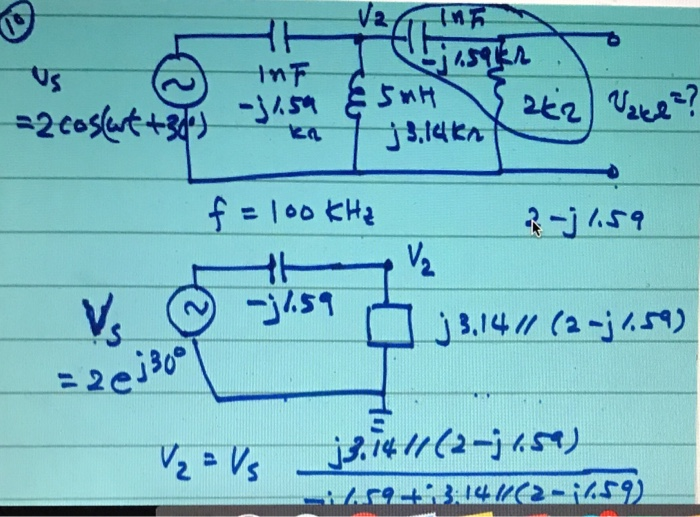 10
V2 1nF
-j1.59kΩ
Vs
=2cos(ωt+30°)
1nF
-j1.59
kΩ
5mH
j3.14kΩ
2kΩ
V2kΩ=?
f = 100 KHz
2-j1.59
V2
-j1.59
Vs
= 2e^j30°
j3.14 // (2-j1.59)
V2 = Vs j3.14 // (2-j1.59)
-j1.59+j3.14//(2-j1.59)